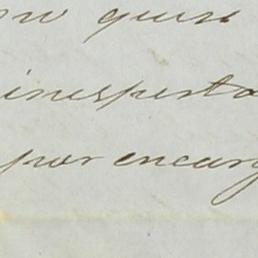 quien
inesperta
por encarg